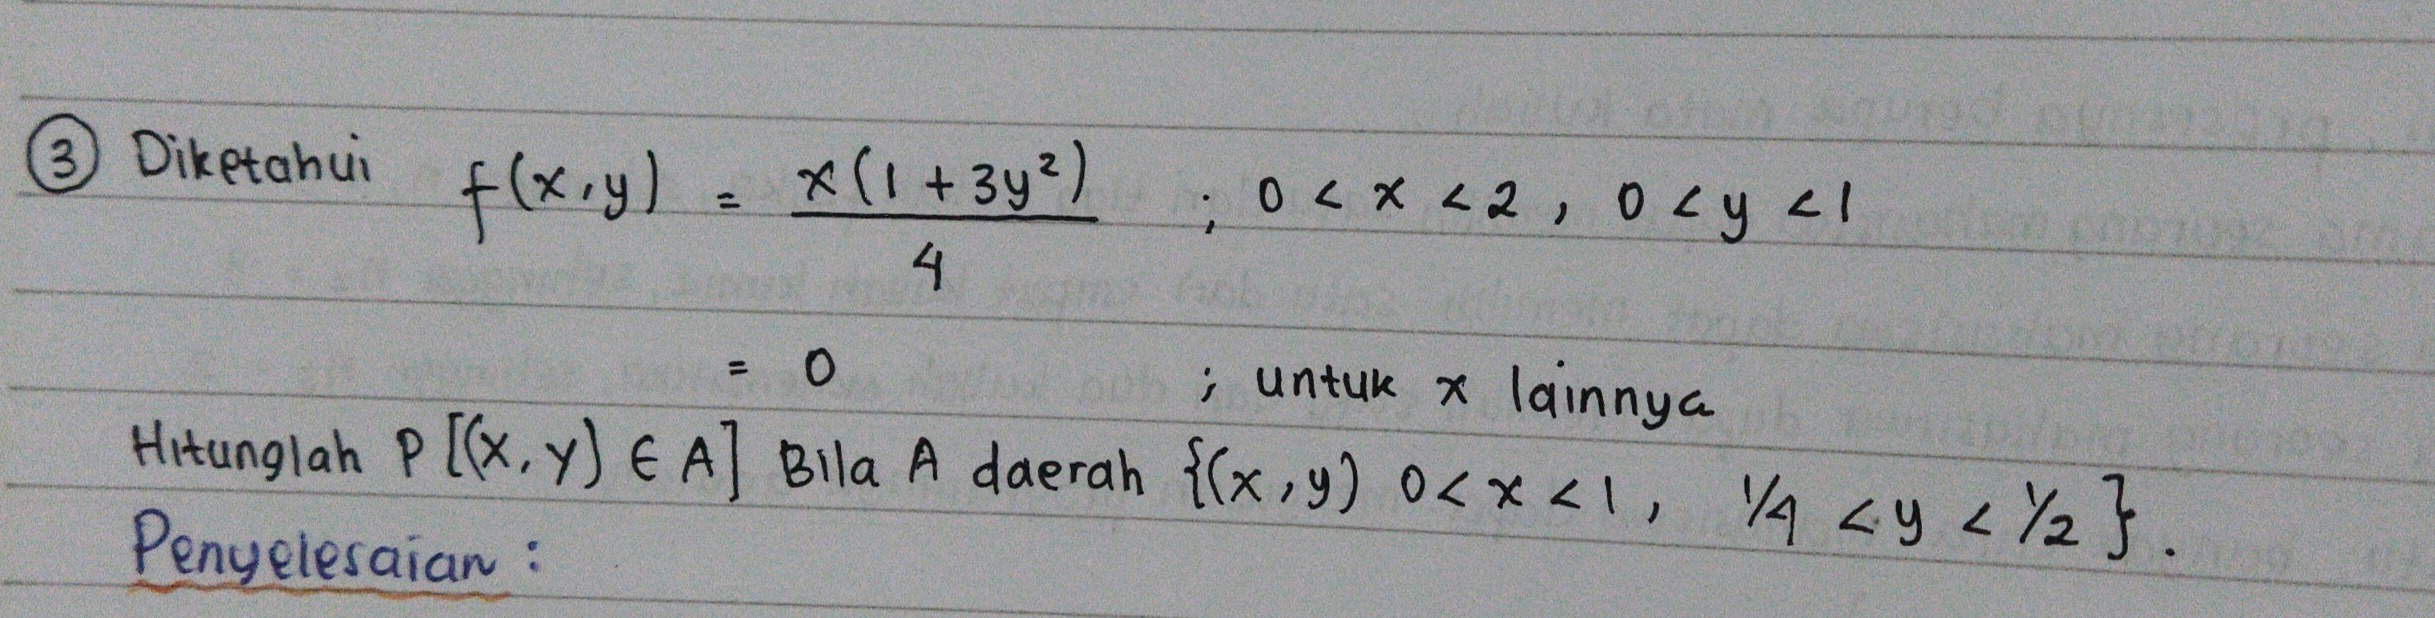 ③ Diketahui f(x,y) = x(1+3y²)/4 ; 0 < x < 2, 0 < y < 1
= 0 ; untuk x lainnya
Hitunglah P[(X,Y) ∈ A] Bila A daerah {(x,y) 0<x<1, 1/4 < y < 1/2}.
Penyelesaian :